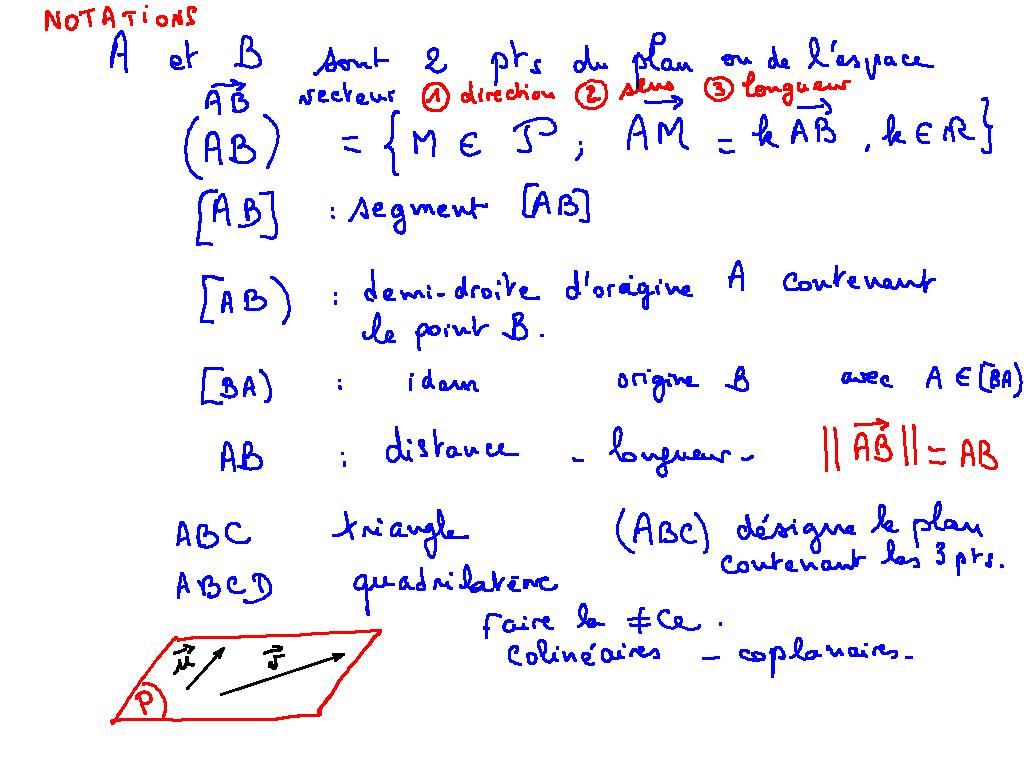 NOTATIONS
A et B sont 2 pts du plan ou de l'espace
$\overrightarrow{AB}$ vecteur ① direction ② sens ③ longueur
(AB) = { M ∈ P ; $\overrightarrow{AM}$ = k $\overrightarrow{AB}$ , k ∈ ℝ }
[AB] : segment [AB]
[AB) : demi-droite d'origine A contenant
le point B.
[BA) : idem origine B avec A ∈ [BA)
AB : distance - longueur - || $\overrightarrow{AB}$ || = AB
ABC triangle (ABC) désigne le plan
contenant les 3 pts.
ABCD quadrilatère
Faire la ≠ce.
colinéaires - coplanaires -
$\vec{u}$ $\vec{v}$
P